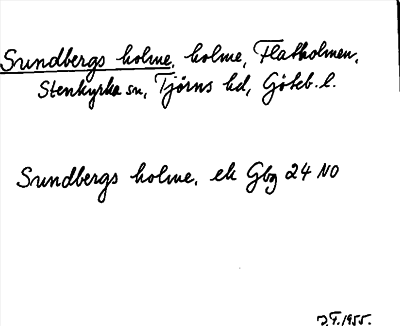 Sundbergs holme, holme, Flatholmen,
Stenkyrka sn, Tjörns hd, Göteb. l.
Sundbergs holme, ek Gbg 24 NO
J.F. 1955.